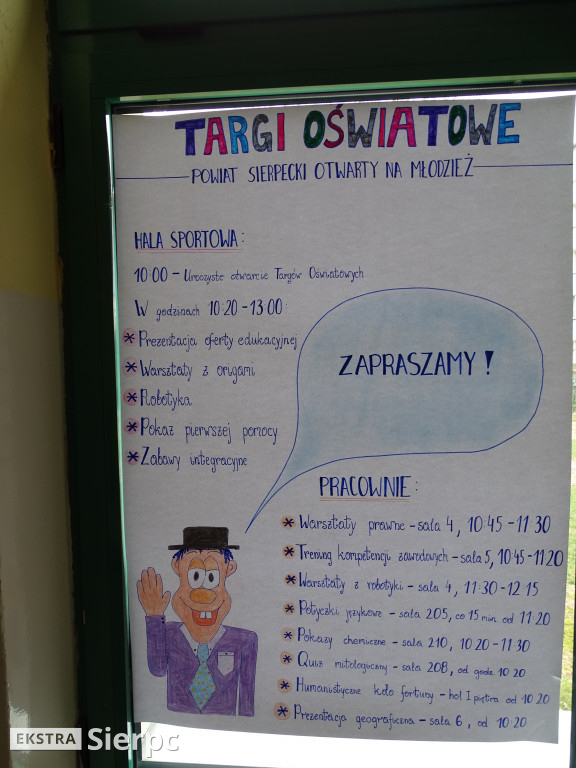 TARGI OŚWIATOWE
POWIAT SIERPECKI OTWARTY NA MŁODZIEŻ
HALA SPORTOWA:
10:00 - Uroczyste otwarcie Targów Oświatowych
W godzinach 10:20 - 13:00:
* Prezentacja oferty edukacyjnej
* Warsztaty z origami
* Robotyka
* Pokaz pierwszej pomocy
* Zabawy integracyjne
ZAPRASZAMY!
PRACOWNIE:
* Warsztaty prawne - sala 4, 10:45 - 11:30
* Trening kompetencji zawodowych - sala 5, 10:45 - 11:20
* Warsztaty z robotyki - sala 4, 11:30 - 12:15
* Potyczki językowe - sala 205, co 15 min. od 11:20
* Pokazy chemiczne - sala 210, 10:20 - 11:30
* Quiz mitologiczny - sala 208, od godz. 10:20
* Humanistyczne koło fortuny - hol I piętra od 10:20
* Prezentacja geograficzna - sala 6, od 10:20
EKSTRA Sierpc